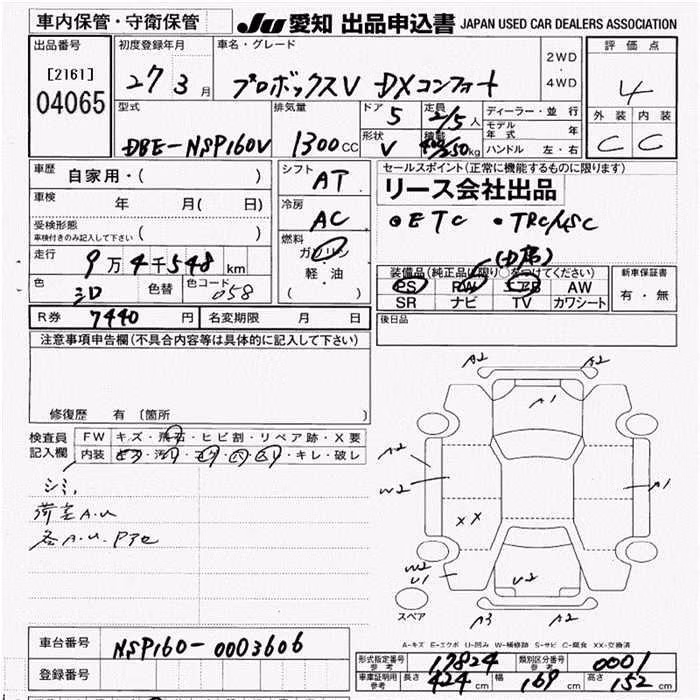 車内保管・守衛保管
JU 愛知 出品申込書 JAPAN USED CAR DEALERS ASSOCIATION
出品番号
[2161]
04065
初度登録年月
27 3 月
車名・グレード
プロボックスV DXコンフォート
2WD
・
4WD
評価点
4
外装 内装
C C
型式
DBE-NSP160V
排気量
1300 CC
ドア
5
形状
V
定員
2/5 人
積載
400/250 kg
ディーラー・並行
モデル年式 年
ハンドル 左・右
車歴
自家用・( )
車検
年 月( 日)
受検形態
車検付きのみ記入して下さい ( )
走行
9万4千548 km
色
シロ
色替
色コード
058
シフト
AT
冷房
AC
燃料
ガソリン
軽・油
( )
セールスポイント(正常に機能するものに限ります)
リース会社出品
●ETC ●TRC/VSC
装備品(純正品に限り○をつけてください)
PS PW エアB AW
SR ナビ TV カワシート
新車保証書
有・無
R券 7440 円
名変期限 月 日
後日品
注意事項申告欄(不具合内容等は具体的に記入して下さい)
修復歴 有 [箇所 ]
検査員
記入欄
FW キズ・飛石・ヒビ割・リペア跡・X要
内装 キズ・汚れ・コゲ・穴・スリ・キレ・破レ
シミ,
荷室A.U
各A.U.
A2 A2
A1
A2
W2
A1
XX
W2
U1
U2
A3 A2
スペア
A-キズ E-エクボ U-凹み W-補修跡 S-サビ C-腐食 XX-交換済
車台番号
NSP160-0003606
登録番号
形式指定番号
参考
17824
類別区分番号
参考
0001
車庫証明用
参考
長さ 424 cm
幅 169 cm
高さ 152 cm